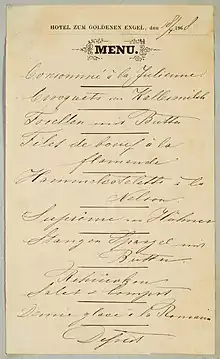 HOTEL ZUM GOLDENEN ENGEL, den
MENU.
Consommé à la Julienne
Croquets von Kalbsmilch
Forellen mit Butter
Filet de boeuf à la
flamande
Hammelcotelette à la
Nelson
Suprême von Hühner
Stangen Spargel mit
Butter
Rehrücken
Salat & Compot
Dame glacé à la Romana
Dessert